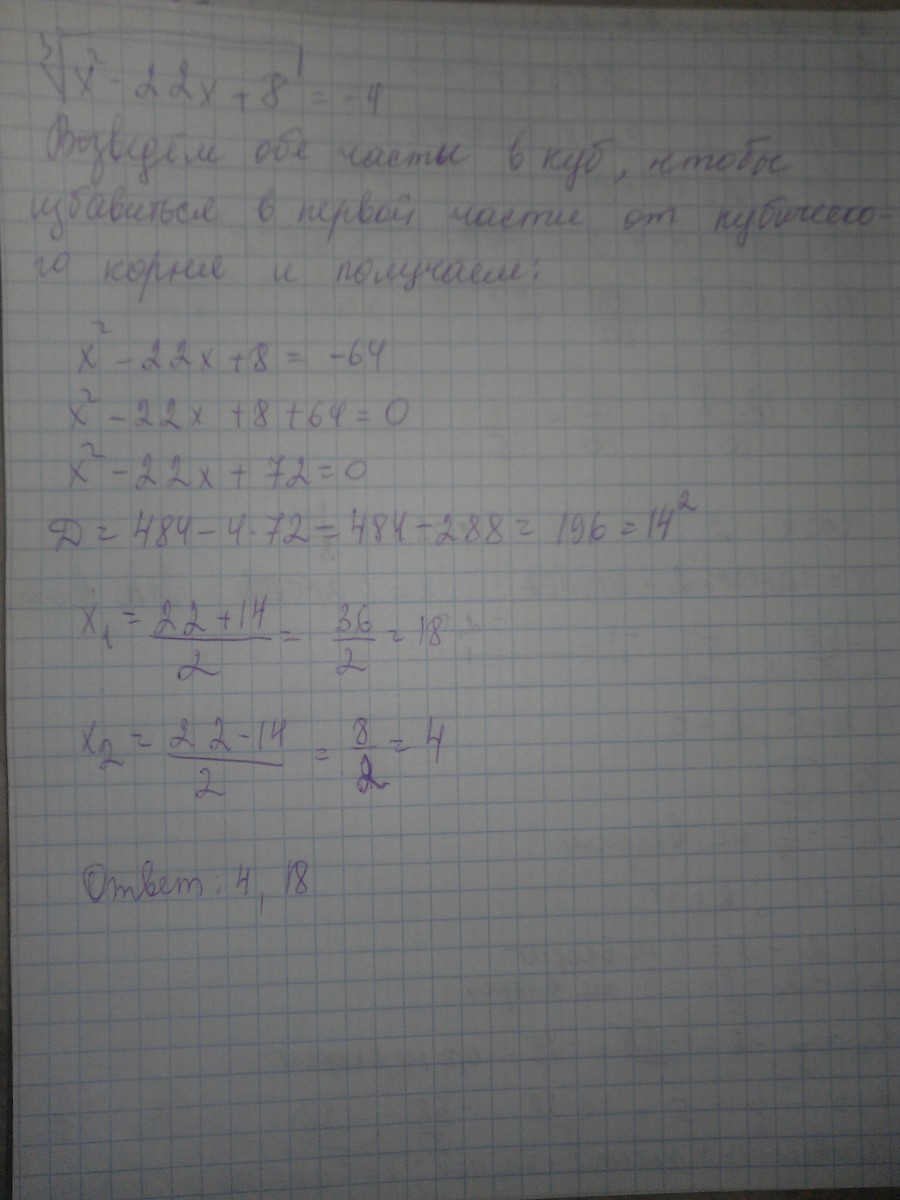 ∛(x² - 22x + 8) = -4
Возведём обе части в куб, чтобы
избавиться в первой части от кубическо-
го корня и получаем:
x² - 22x + 8 = -64
x² - 22x + 8 + 64 = 0
x² - 22x + 72 = 0
Д = 484 - 4·72 = 484 - 288 = 196 = 14²
x₁ = (22 + 14)/2 = 36/2 = 18
x₂ = (22 - 14)/2 = 8/2 = 4
Ответ: 4, 18